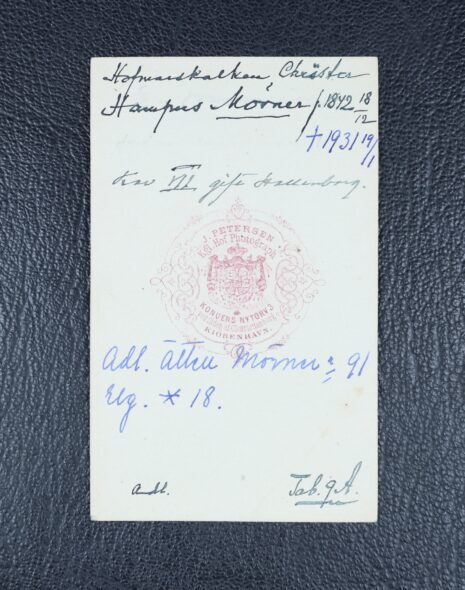 Hofmarskalken Christer
Hampus Mörner f. 1842 18/12
† 1931 19/1
Kav VII gift Hallenborg.
J. PETERSEN
Kgl. Hof Photograph
KONGENS NYTORV 3
KJÖBENHAVN.
Adl. ätten Mörner 91
Elg. * 18.
Adl.
Tab. 9A.